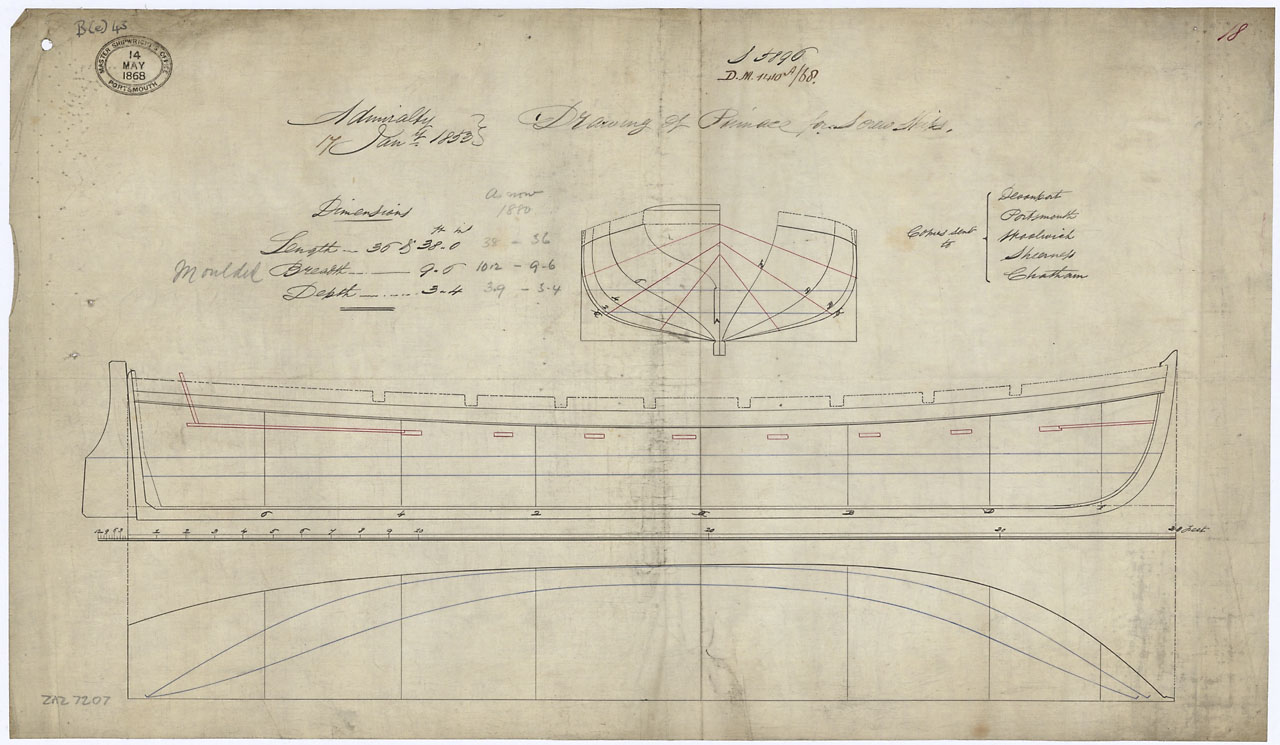 B(e) 43
18
MASTER SHIPWRIGHT'S OFFICE
14
MAY
1868
PORTSMOUTH
S 5896
D.M. /68.
Admiralty
17 Jany 1853
Drawing of Pinnace for Screw Ships.
As now
1880
Dimensions
ft ins
Length 36 & 38.0 38 - 36
Moulded Breadth 9.6 10.2 - 9-6
Depth 3.4 3.9 - 3-4
Copies sent
to
Devonport
Portsmouth
Woolwich
Sheerness
Chatham
6 4 2
12 9 6 3 1 2 3 4 5 6 7 8 9 10 20 30 38 Feet
ZAZ 7207